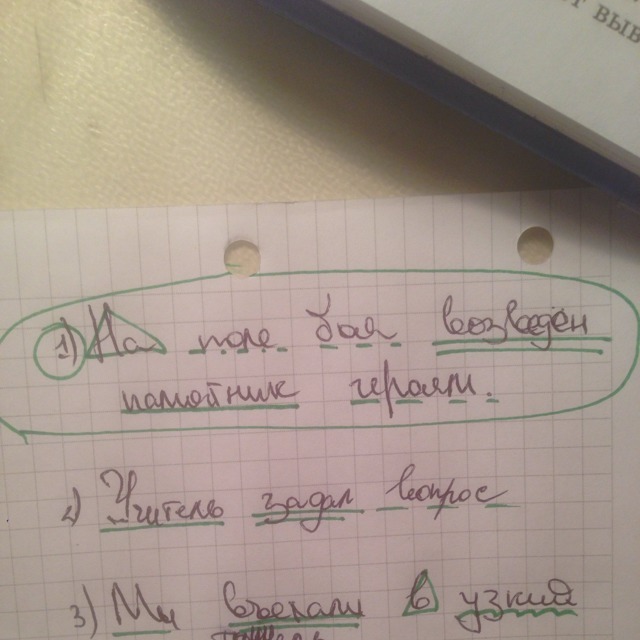 ВЫВ
1) На поле боя возведён
памятник героям.
2) Учитель задал вопрос
3) Мы въехали в узкий